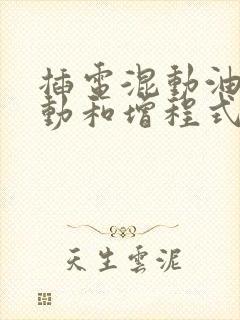 插電混動油
動和增程式
天生雲泥